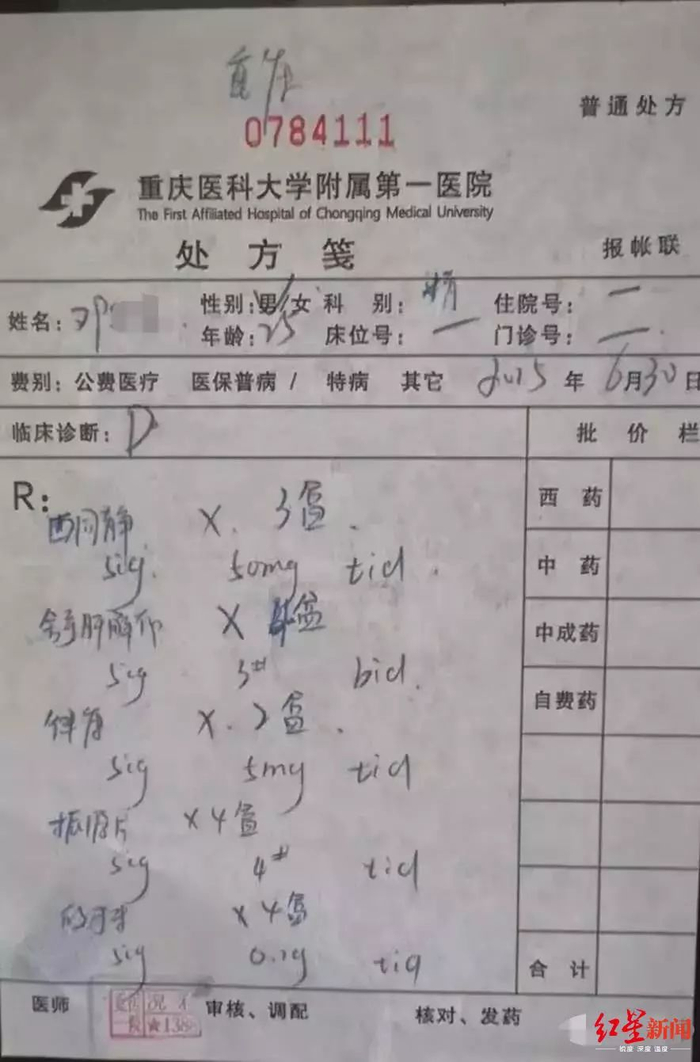 0784111
普通处方
重庆医科大学附属第一医院
The First Affiliated Hospital of Chongqing Medical University
处方笺
报帐联
姓名：邓 性别：男/女 科别： 住院号：一
年龄：25 床位号：一 门诊号：一
费别：公费医疗 医保普病 / 特病 其它 2015年6月30日
临床诊断：D
批价栏
R：
西同静 X. 3盒.
sig. 50mg tid.
舒肝解郁 X 4盒
sig 3# bid.
X. 2盒.
sig 5mg tid
振源片 X4盒
sig 4# tid
X4盒
sig 0.2g tid
西药
中药
中成药
自费药
合计
医师 审核、调配 核对、发药
红星新闻
锐度 深度 温度